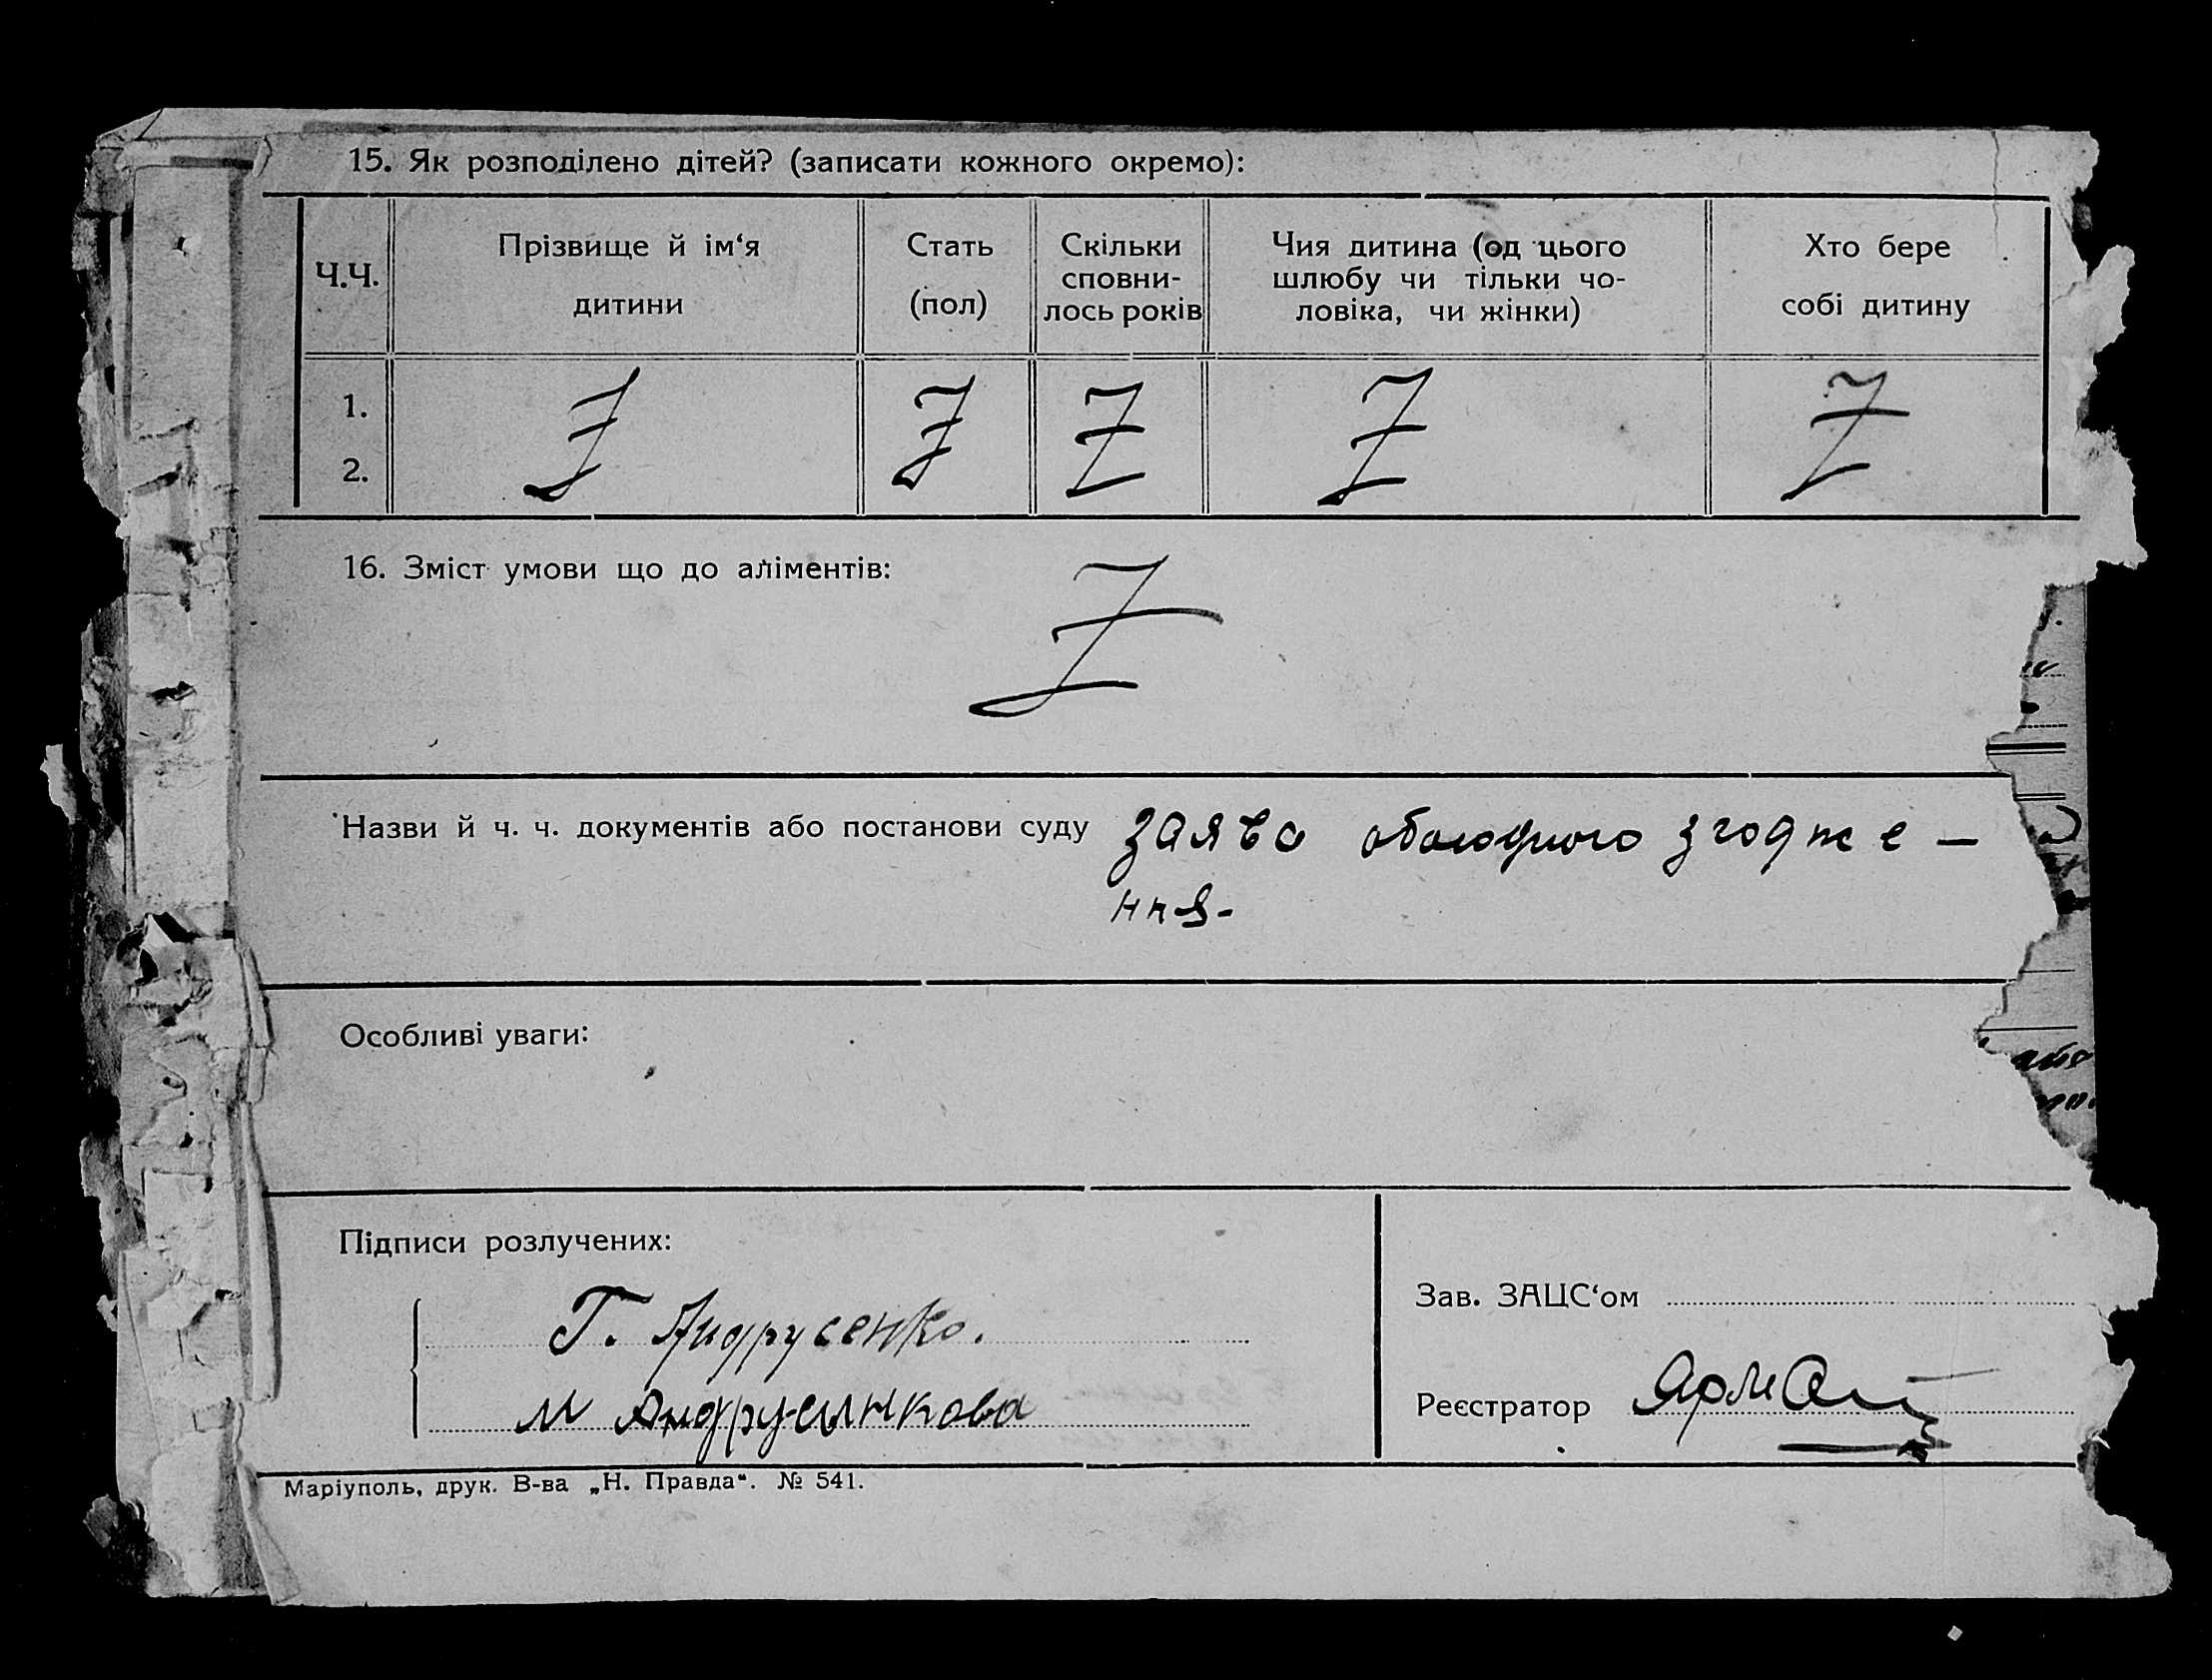 15. Як розподілено дітей? (записати кожного окремо):
Ч.Ч.
Прізвище й ім‘я
дитини
Стать
(пол)
Скільки
сповни-
лось років
Чия дитина (од цього
шлюбу чи тільки чо-
ловіка, чи жінки)
Хто бере
собі дитину
1.
2.
Z Z Z Z Z
16. Зміст умови що до аліментів:
Z
Назви й ч. ч. документів або постанови суду заява обоюдного згодже —
ння-
Особливі уваги:
Підписи розлучених:
Г. Андрусенко.
М Андрусынкова
Зав. ЗАЦС‘ом
Реєстратор
Маріуполь, друк. В-ва „Н. Правда“. № 541.